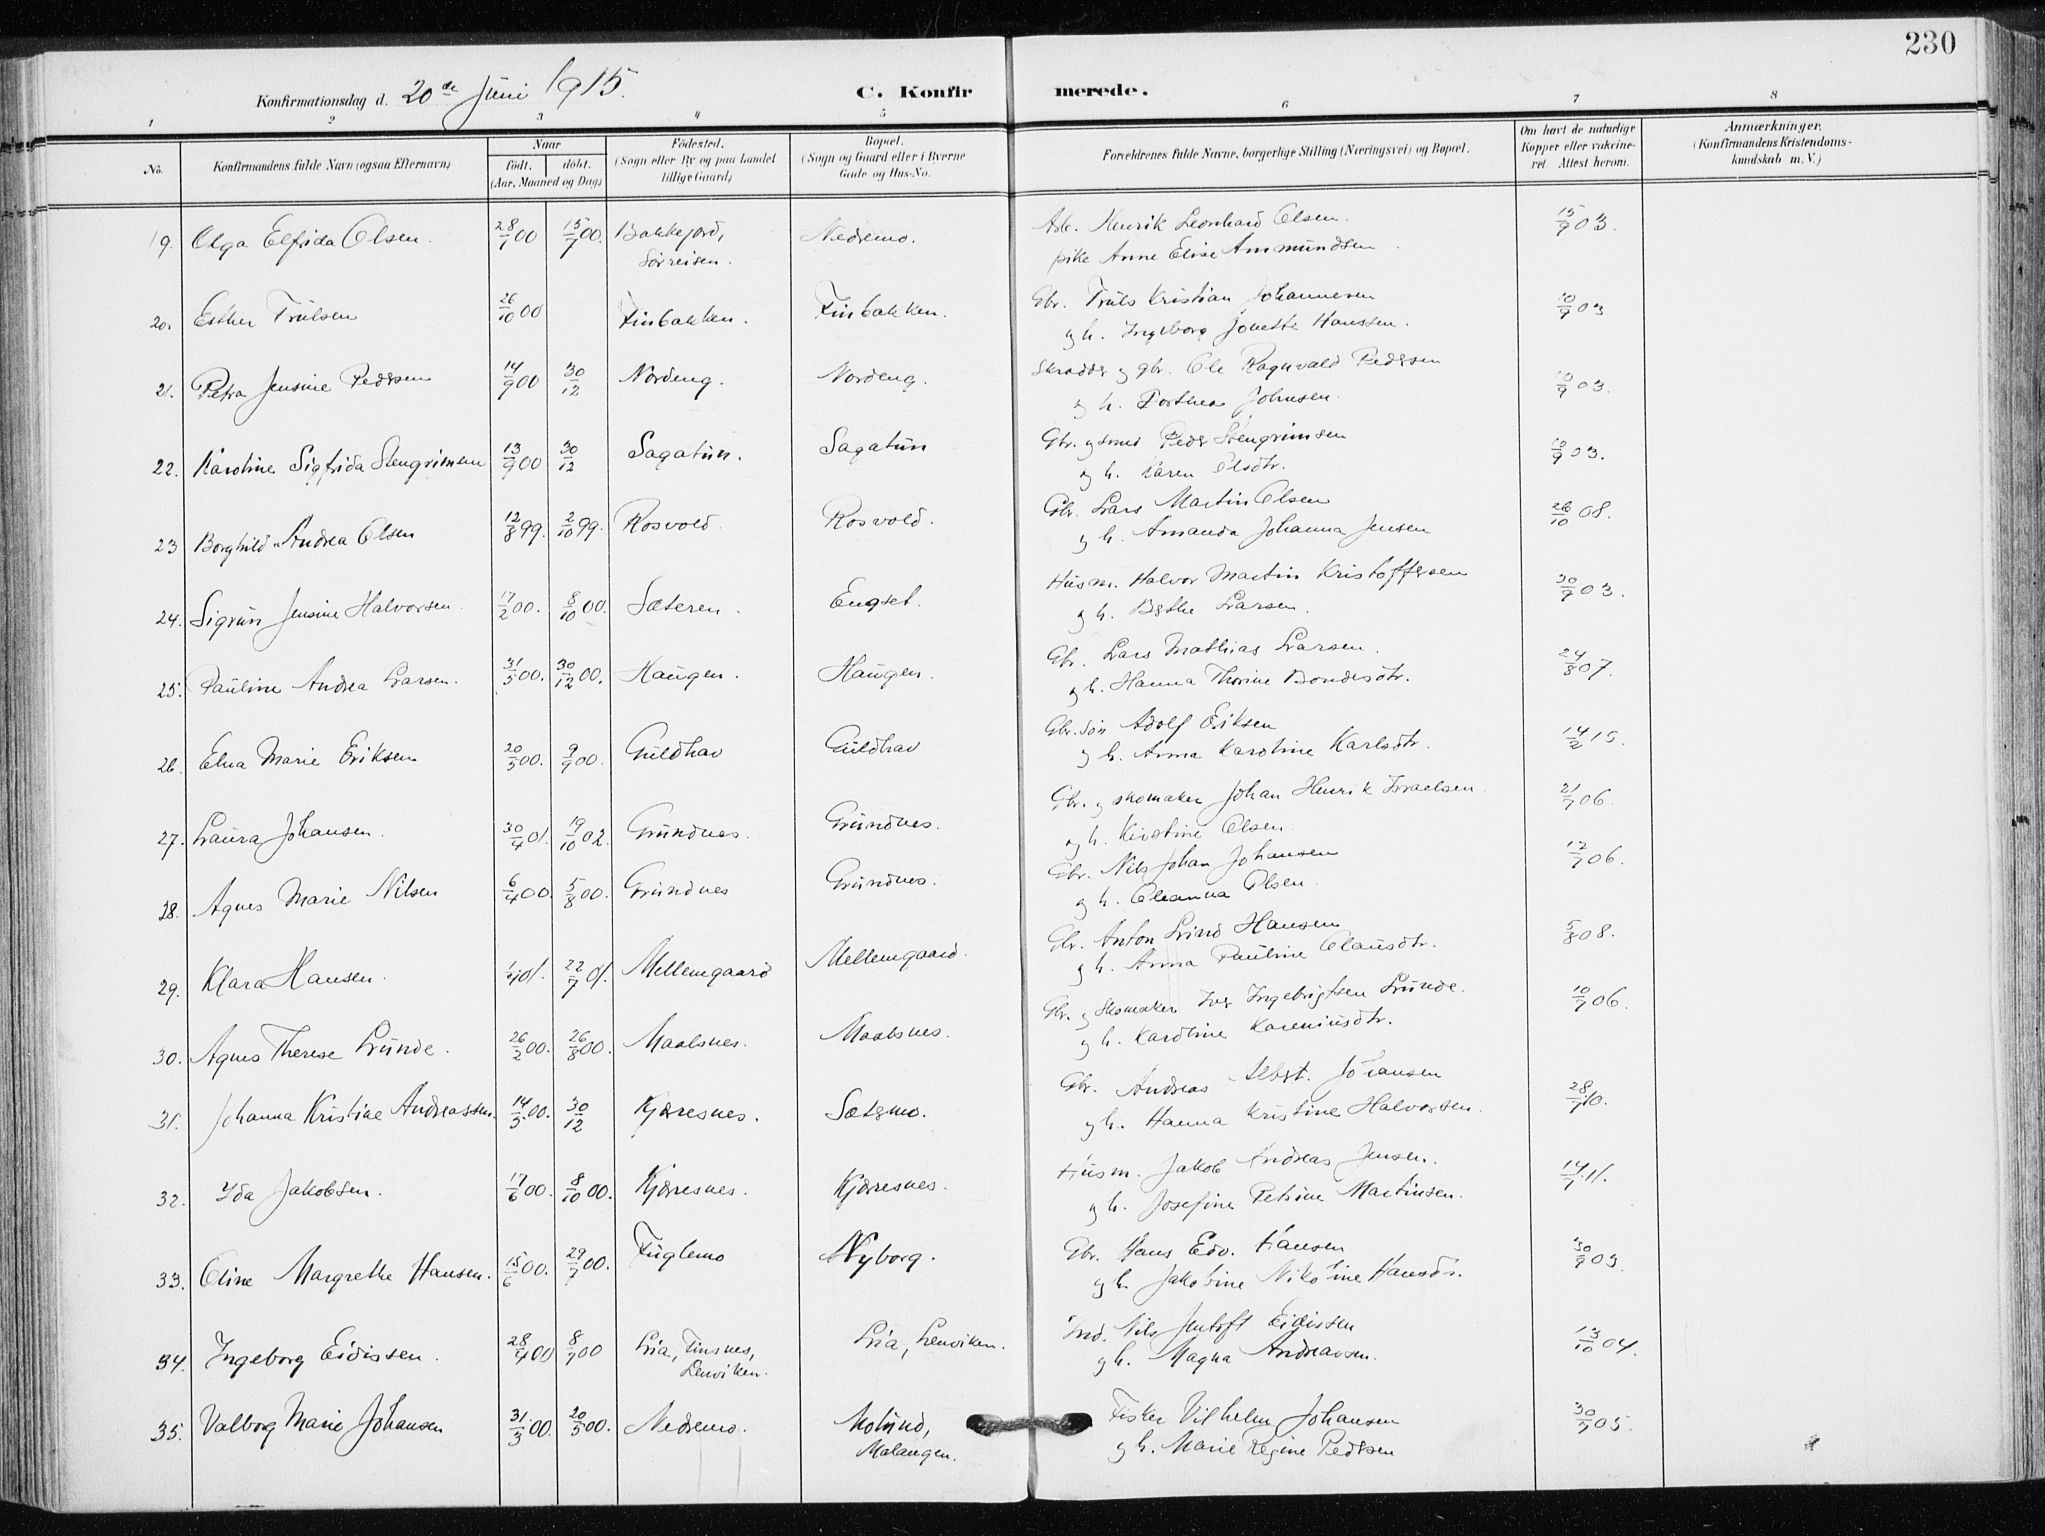 230
Konfirmationsdag d. 20de Juni 1915.
C. Konfirmerede.
1 2 3 4 5 6 7 8
No. Konfirmandens fulde Navn (ogsaa Efternavn) Naar født. døbt. (Aar, Maaned og Dag) Fødested. (Sogn eller By og paa Landet tillige Gaard) Bopæl. (Sogn og Gaard eller i Byerne Gade og Hus-No. Forældrenes fulde Navne, borgerlige Stilling (Næringsvei) og Bopæl. Om havt de naturlige Kopper eller vaccineret. Attest herom. Anmærkninger. (Konfirmandens Kristendomskundskab m. V.)
19. Olga Elfrida Olsen. 28/7 00 15/7 00. Bakkejord, Sørreisen. Nedremo. Arb. Henrik Leonhard Olsen. 15/9 03.
pike Anne Elise Ammundsen.
20. Esther Trulsen 26/10 00 Finbakken. Finbakken. Gbr. Truls Kristian Johannesen 10/9 03
og h. Ingeborg Jonette Hanssen.
21. Petra Jensine Pedersen 14/9 00 30/12 Nordeng. Nordeng. Skrædder og gbr. Ole Ragnvald Pedersen 10/9 03.
og h. Dorthea Johnsen.
22. Karoline Sigfrida Stengrimsen 13/9 00 30/12 Sagatun. Sagatun Gbr. og smed Peder Stengrimsen 10/9 03.
og h. Karen Olsdtr.
23 Borghild Andrea Olsen 12/8 99. 2/10 99. Rosvold. Rosvold. Gbr. Lars Martin Olsen 26/10 08.
og h. Amanda Johanna Jensen
24. Sigrun Jensine Halvorsen. 17/2 00. 8/10 00. Sæteren. Engset. Husm. Halvor Martin Kristoffersen 30/9 03.
og h. Berthe Larsen.
25. Pauline Andrea Larsen. 31/5 00. 30/12 00. Haugen. Haugen. Gbr. Lars Mathias Larsen. 24/8 07.
og h. Hanna Thorine Bondesdtr.
26. Elna Marie Eriksen 20/5 00. 9/9 00. Guldhav Guldhav Gbr. søn Adolf Eriksen 14/2 15.
og h. Anna Karoline Karlsdtr.
27. Laura Johansen. 30/4 01. 19/10 02. Grundnes. Grundnes. Gbr. og skomaker Johan Henrik Israelsen. 21/7 06.
og h. Kirstine Olsen.
28. Agnes Marie Nilsen 6/4 00. 5/8 00. Grundnes Grundnes. Gbr. Nils Johan Johansen 12/7 06.
og h. Oleanna Olsen.
29. Klara Hansen. 1/4 01. 22/7 01. Mellemgaard Mellemgaard. Gbr. Anton Lind Hansen 5/8 08.
og h. Anna Pauline Olausdtr.
30. Agnes Therese Lunde. 26/2 00. 26/8 00. Maalsnes. Maalsnes. Gbr. og skomaker Iver Ingebrigtsen Lunde. 10/7 06.
og h. Karoline Kareniusdtr.
31. Johanna Kristine Andreassen. 14/5 00. 30/12 Kjærresnes. Sætermo. Gbr. Andreas Albert. Johansen 28/7 10.
og h. Hanna Kristine Halvorsen.
32. Ida Jakobsen. 17/6 00. 8/10 00. Kjærresnes. Kjærresnes. Husm. Jakob Andreas Jensen. 14/7 11.
og h. Josefine Petrine Martinsen.
33. Oline Margrethe Hansen. 15/6 00. 29/7 00. Fuglemo Nyborg. Gbr. Hans Edv. Hansen 30/9 03
og h. Jakobine Nikoline Hansdtr.
34. Ingeborg Eidissen. 28/4 00 8/7 00 Lia, Finsnes, Lenviken. Lia, Lenviken. Ind. Nils Jentoft Eidissen 13/10 04.
og h. Magna Andreassen.
35. Valborg Marie Johansen 31/3 00. 20/5 00. Nedremo. Molund, Malangen. Fisker Vilhelm Johansen 30/7 05.
og h. Marie Regine Pedersen